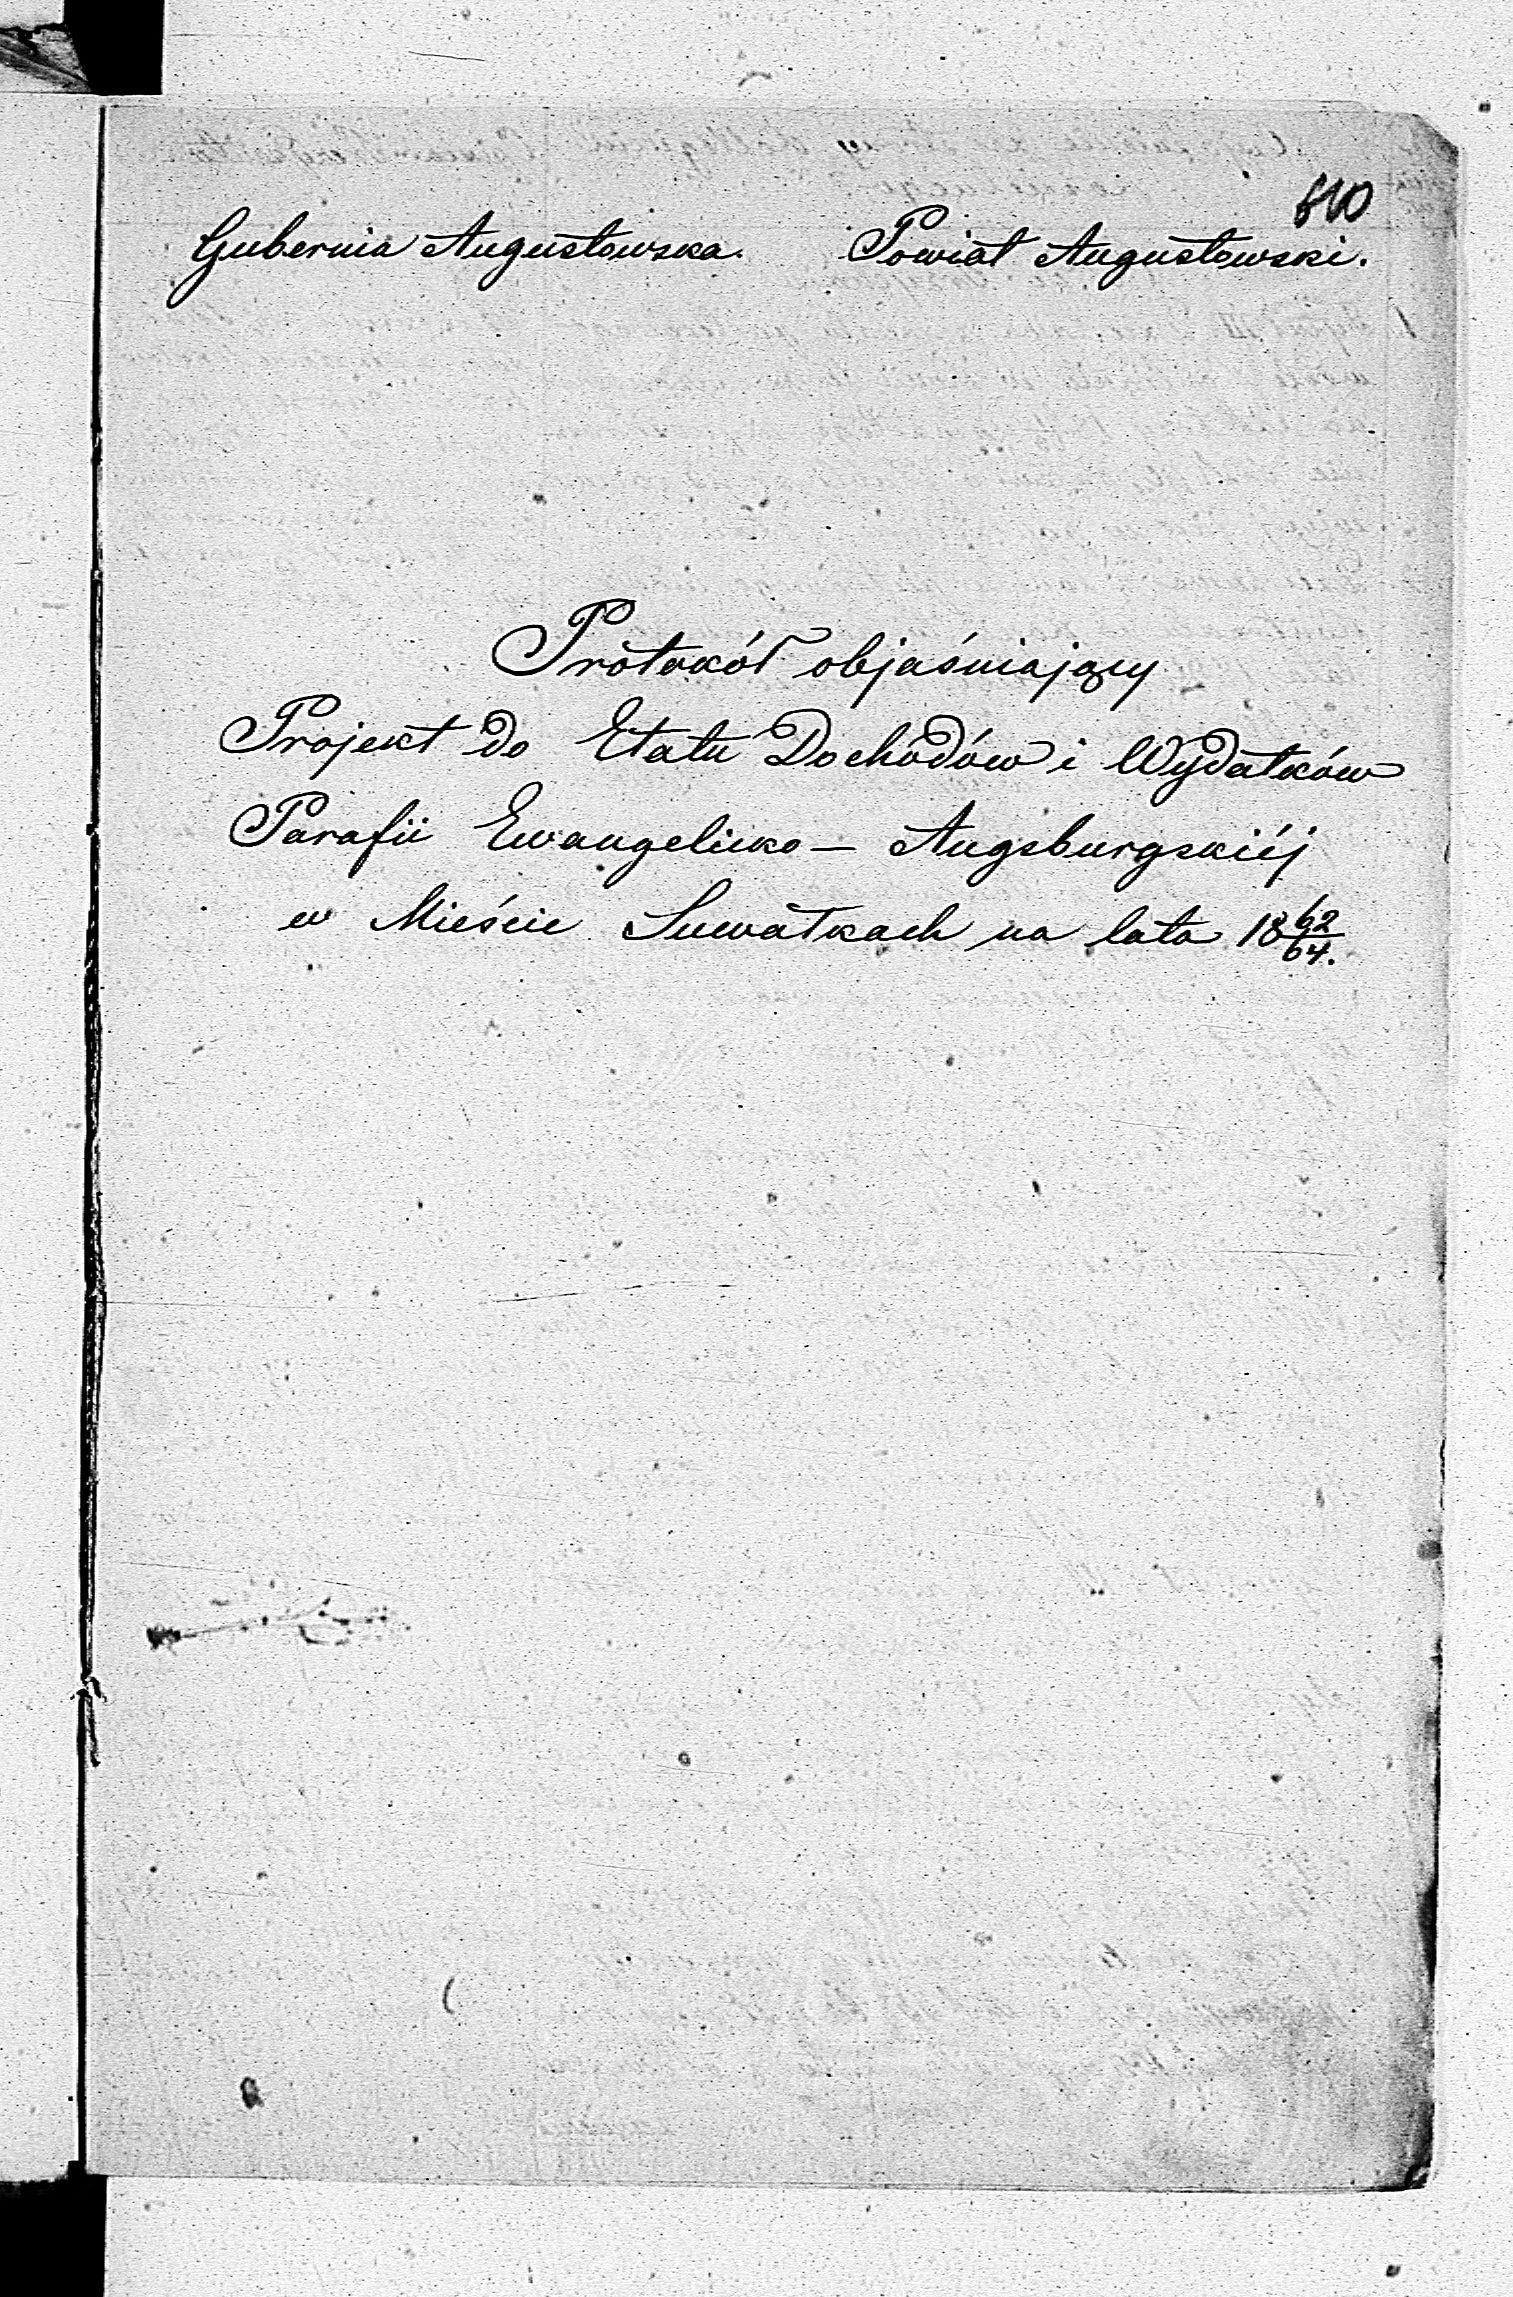 Gubernia Augustowska. Powiat Augustowski.
Protokół objaśniający
Projekt do Etatu Dochodów i Wydatków
Parafii Ewangelicko — Augsburgskiéj
w Mieście Suwałkach na lata 18 62/64.